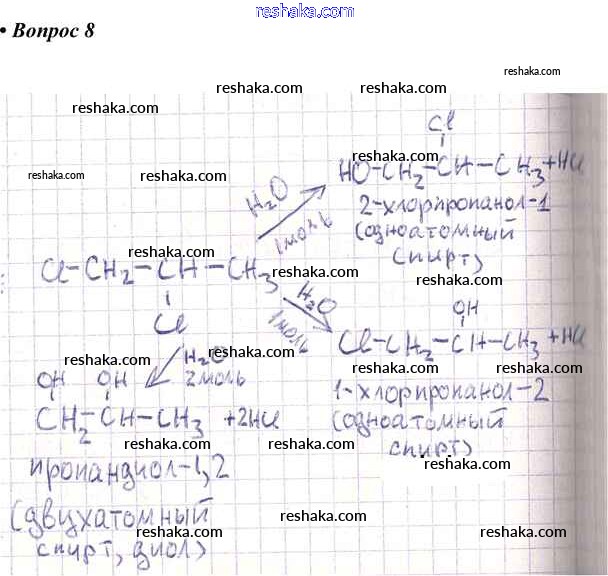 reshaka.com
• Вопрос 8
reshaka.com
reshaka.com
reshaka.com
reshaka.com
reshaka.com
Cl
HO-CH2-CH-CH3+HCl
2-хлорпропанол-1
(одноатомный
спирт)
H2O
1моль
reshaka.com
reshaka.com
reshaka.com
reshaka.com
Cl-CH2-CH-CH3
Cl
H2O
1моль
OH
Cl-CH2-CH-CH3+HCl
1-хлорпропанол-2
(одноатомный
спирт)
reshaka.com
reshaka.com
reshaka.com
H2O
2моль
OH OH
CH2-CH-CH3 +2HCl
пропандиол-1,2
(двухатомный
спирт, диол)
reshaka.com
reshaka.com
reshaka.com
reshaka.com
reshaka.com
reshaka.com
reshaka.com
reshaka.com